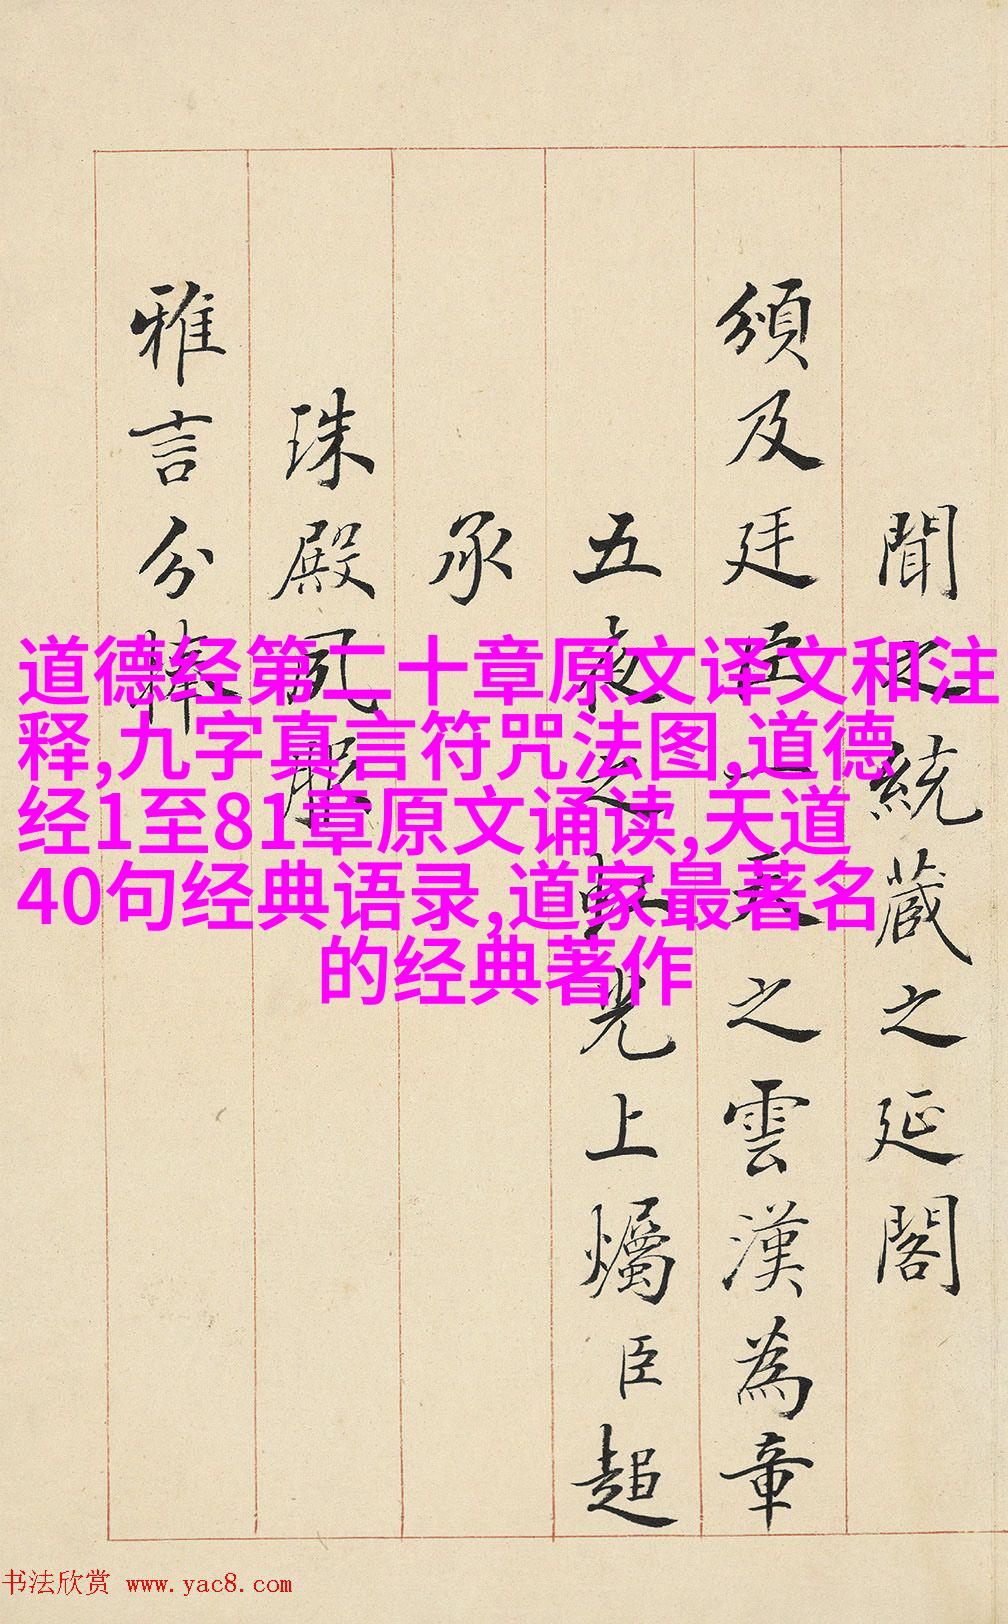 道德经第二十章原文译文和注
释,九字真言符咒法图,道德
经1至81章原文诵读,天道
40句经典语录,道家最著名
的经典著作
聞之統蔵之延閣
頒及廷臣一天之雲漢為章
五夜之虹光上爥臣超
承
珠殿夙服
雅言分捧
书法欣赏 www.yac8.com